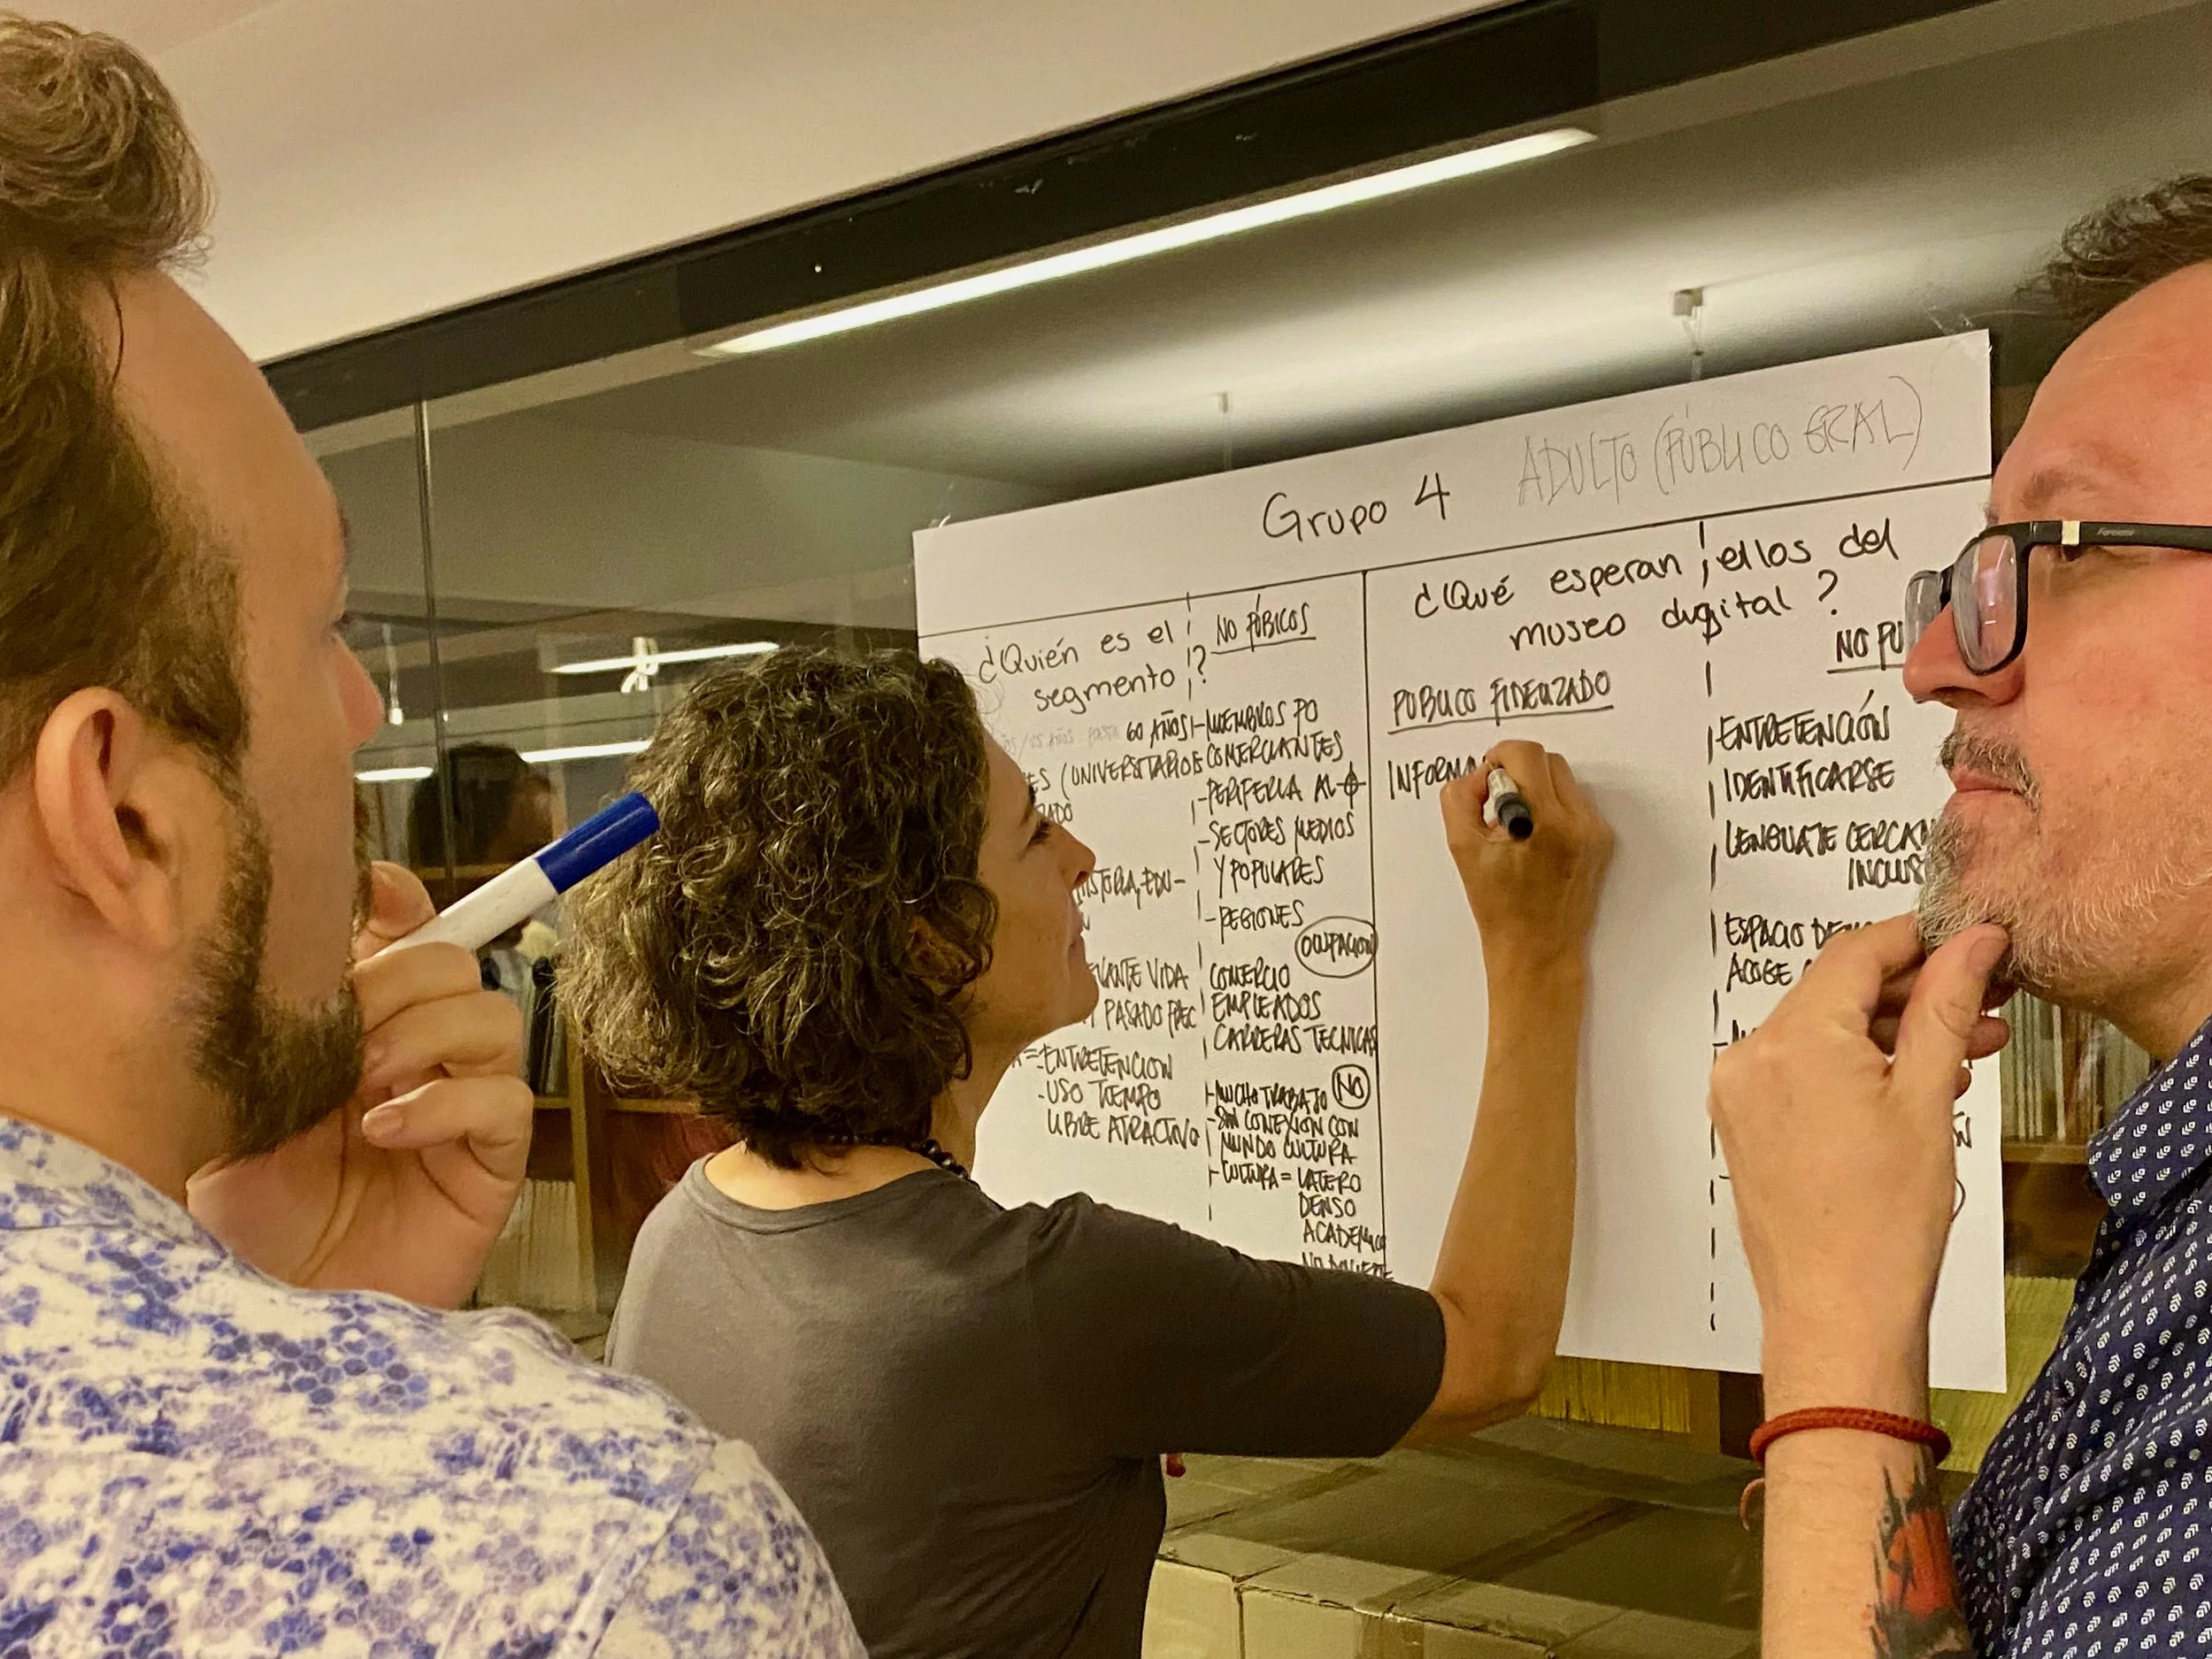 Grupo 4
ADULTO (PÚBLICO GRAL)
¿Quién es el
segmento ?
60 AÑOS
(UNIVERSITARIOS
HISTORIA, EDU-
VIDA
PASADO
-ENTRETENCION
-USO TIEMPO
LIBRE ATRACTIVO
NO PÚBICOS
-MIEMBROS PO
COMERCIANTES
-PERIFERIA AL
-SECTORES MEDIOS
Y POPULARES
-REGIONES
OCUPACION
COMERCIO
EMPLEADOS
CARRERAS TECNICAS
-MUCHO TRABAJO NO
-SIN CONEXION CON
MUNDO CULTURA
-CULTURA = LATERO
DENSO
ACADEMICO
¿Qué esperan ellos del
museo digital ?
PÚBLICO FIDELIZADO
INFORMA
NO PU
ENTRETENCIÓN
IDENTIFICARSE
LENGUAJE CERCAN
INCLUS
ESPACIO
ACOGE